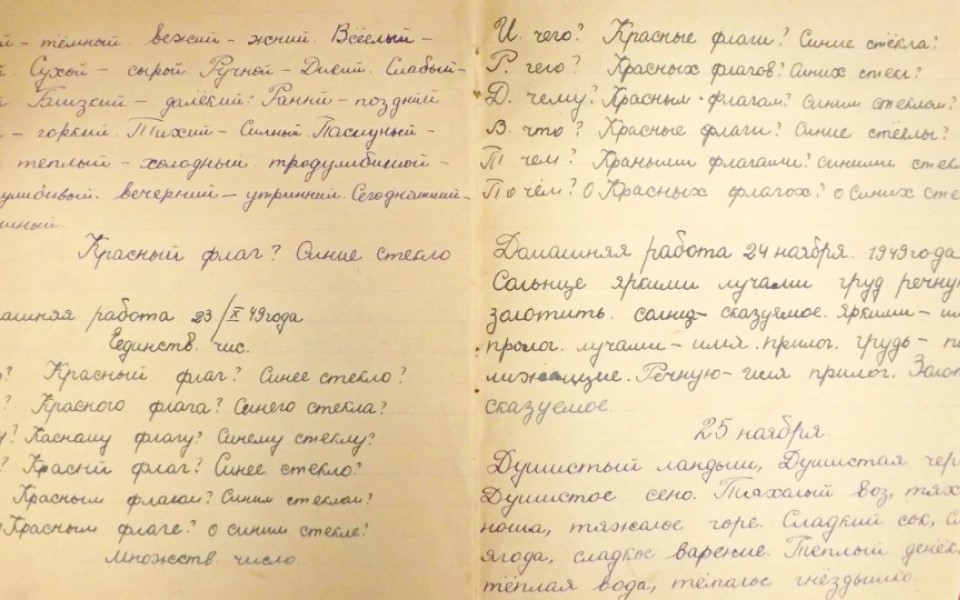 й – тёмный. вежий – жний. Всёлый –
й. Сухой – сырой Ручной – Дикий. Слабый –
й Близкий – далёкий. Ранний – поздний
– горкий. Тихий – Силный. Пасмурный –
теплый – холодный. трудолюбивой –
вечерний – утринний. Сегодняшний –
Красный флаг? Синие стекло
ашняя работа 23/X 49года
Единств. чис.
? Красный флаг? Синее стекло?
? Красного флага? Синего стекла?
у? Касному флагу? Синему стеклу?
? Краснй флаг? Синее стекло?
Красным флагом? Синим стеклом?
Красным флаге? о синим стекле?
Множств. число.
И. чего? Красные флаги? Синие стёкла?
Р. чего? Красных флагов? Синих стекл?
Д. чему? Красным флагам? Синим стеклам?
В. что? Красные флаги? Синие стёклы?
Т чем? Краными флагами? синими стекл
По чём? О Красных флагох? о Синих сте
Домашняя работа 24 ноября. 1949года
Сольнце яркими лучами груд речную
золотить. солнц – сказуемое. Яркими – им
пролог. лучами – имя. прилог. грудь – по
лижающие. Речную – имя прилог. Золот
сказуемое.
25 ноября.
Душистый ландыш, Душистая чер
Душистое сено. Тяжолый воз, тяж
ноша, тяжолое горе. Сладкий сок, Сл
ягода, сладкое варение. Теплый денёк,
тёплая вода, тёполое гнёздышко.